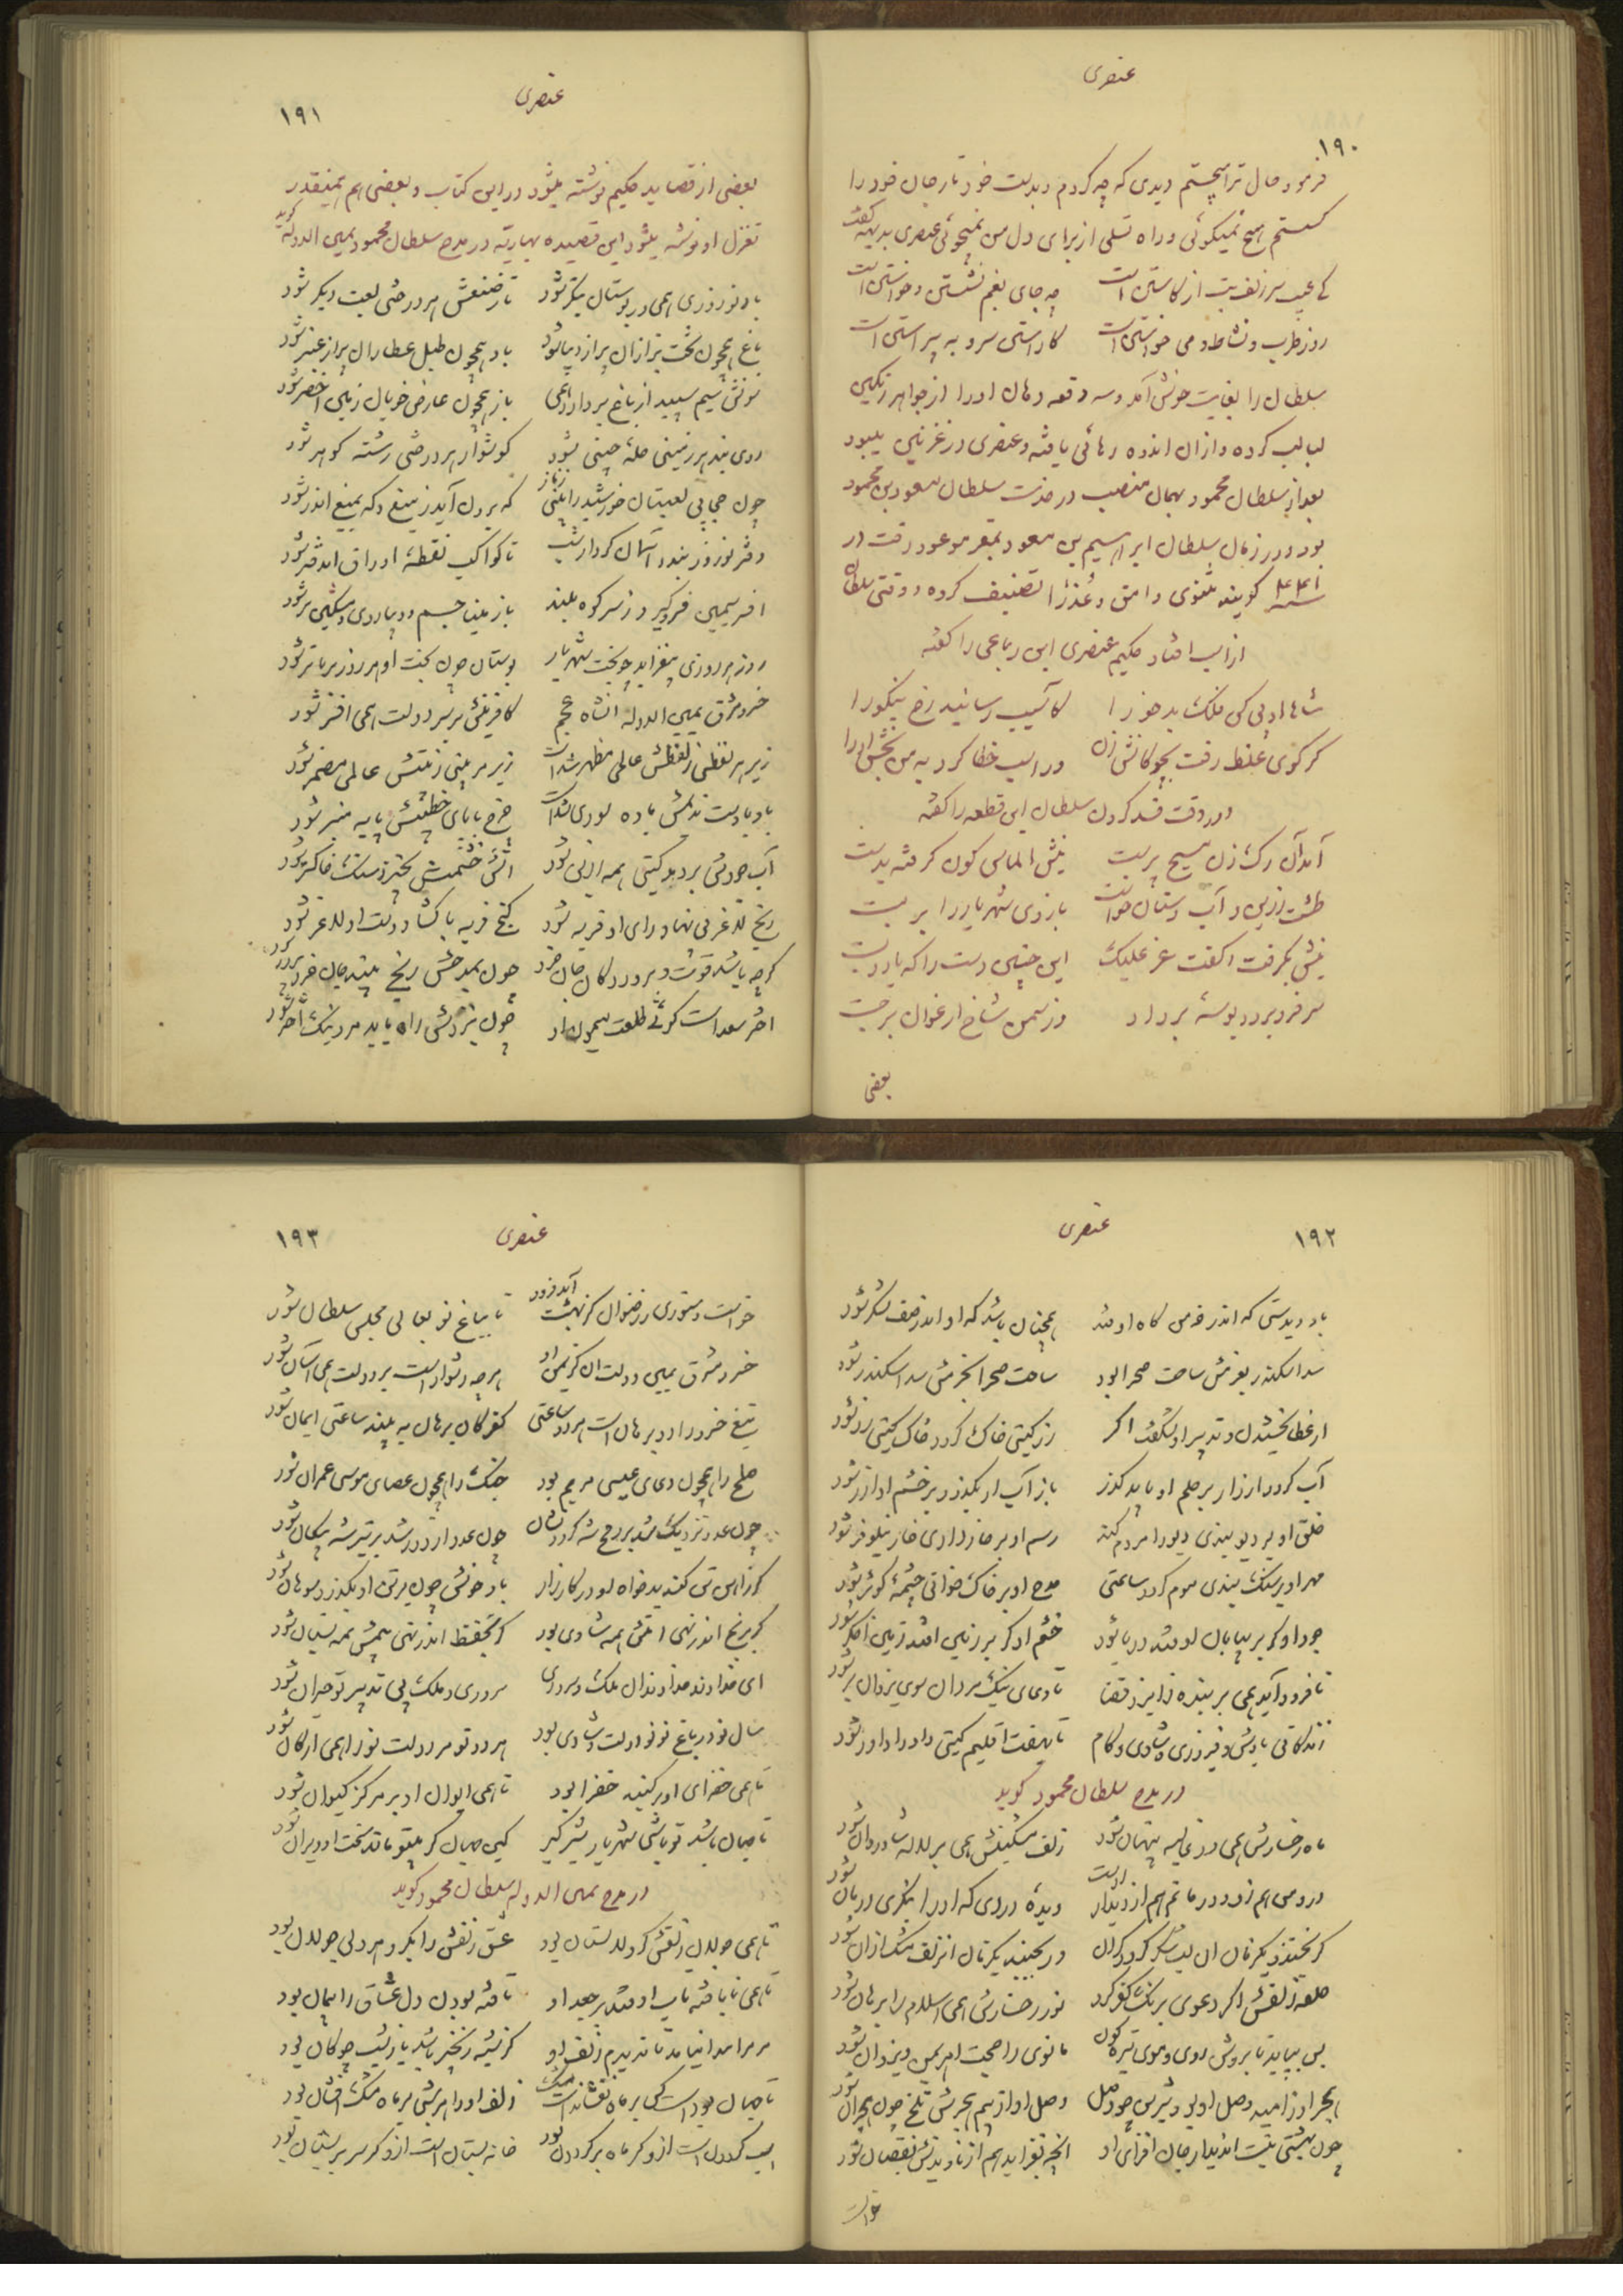 عنصری
۱۹۰
فرمود حال ترا میجستم دیدی که چه کردم و بدست خود تار جان خود را
کسستم هیچ نمیکوئی و راه تسلی از برای دل من نمیجوئی عنصری بدیهه گفت
کی عیب سر زلف بت از کاستن است چه جای بغم نشستن و خواستن است
روز طرب و نشاط و می خواستن است کاراستن سرو به پیراستن است
سلطان را بغایت خوش آمد و سه دفعه دهان او را از جواهر رنگین
لبالب کرده و از آن اندوه رهائی یافته و عنصری در غزنین میبود
بعد از سلطان محمود بهمان منصب در خدمت سلطان مسعود بن محمود
بود و در زمان سلطان ابراهیم بن مسعود بمقر موعود رفت در
سنه ۴۴۱ کویند مثنوی وامق و عذرا تصنیف کرده و وقتی سلطان
از اسب افتاد حکیم عنصری این رباعی را گفته
شاها ادبی کن فلک بدخو را کاسیب رسانید رخ نیکو را
گر کوی غلط رفت بچوکانش زن ور اسب خطا کرد به من بخش او را
در وقت فصد کردن سلطان این قطعه را گفته
آمد آن رک زن مسیح پرست نیش الماس کون گرفته بدست
طشت زرین و آب دستان خواست بازوی شهریار را بر بست
نیش بگرفت و گفت عز علیک این چنین دست را که یارد خست
سر فرو برد و بوسهٔ برداد وز سمن شاخ ارغوان برجست
بعضی
عنصری
۱۹۱
بعضی از قصاید حکیم نوشته میشود در این کتاب و بعضی هم بمینقدر
تغزل او نوشته میشود این قصیده بهاریه در مدح سلطان محمود یمین الدوله کوید
باد نوروزی همی در بوستان بتگر شود تا ز صنعش هر درختی لعبت دیگر شود
باغ همچون کلبهٔ بزازان پر از دیبا شود باد همچون طبل عطاران پر از عنبر شود
سونش سیم سپید از باغ بردارد همی باز همچون عارض خوبان زمین اخضر شود
روی بند هر زمینی حلهٔ چینی شود کوشوار هر درختی رشته کوهر شود
چون حجابی لعبتان خورشید را بینی ز ناز که برون آید ز میغ و که بمیغ اندر شود
دفتر نوروز بندد آسمان کردار شب تا کواکب نقطهٔ اوراق آن دفتر شود
افسر سیمین فروگیرد ز سر کوه بلند باز مینا چشم و دیبا روی و مشکین بر شود
روز هر روزی بیفزاید چو بخت شهریار بوستان چون بخت او هر روز برناتر شود
خسرو مشرق یمین الدوله آنشاه عجم کافرینش بر سر دولت همی افسر شود
زیر هر لفظی ز لفظش عالمی مظهر شده است زیر هر بیتی ز بیتش عالمی مضمر شود
باد با دست ندیمش باده نوری شده است چرخ با پای خطیبش پایه منبر شود
آب جودش بردمد گیتی همه انهی شود آتش خشمش بخیزد سنک خاکستر شود
رنج لاغر بی نهاد و رای او فربه شود گنج فربه با گشاد دست او لاغر شود
گرچه باشد قوت و پرورد کان جان خرد چون بمدحش رنج بیند جان خرد پرور شود
اختر سعد است گوئی طلعت میمون او چون نزدش راه یابد مرد نیک اختر شود
۱۹۲
عنصری
باد دیدستی که اندر خرمن کاه اوفتد همچنان باشد که او اندر صف لشکر شود
سد اسکندر بعزمش ساحت صحرا بود ساحت صحرا بحزمش سد اسکندر شود
از عطا بخشیدن و تدبیر او نشگفت اگر زر گیتی خاک گردد خاک گیتی زر شود
آب گردد آذر ار بر حلم او یابد گذر باز آب ار بگذرد بر خشم او آذر شود
خلق او بر دیو بندی دیو را مردم کند رسم او بر خار داری خار نیلوفر شود
مهر او بر سنک بندی موم گردد ساعتی مدح او بر خاک خوانی چشمهٔ کوثر شود
جود او گر بر بیابان اوفتد دریا شود خشم او گر بر زمین افتد زمین اخگر شود
تا فرود آید همی بر بنده از ایزد قضا تا دعای نیک مردان سوی یزدان بر شود
زندکانی بادش و فیروزی و شادی و کام تا بهفت اقلیم گیتی داد را داور شود
در مدح سلطان محمود کوید
ماه رخسارش همی در غالیه پنهان شود زلف مشکینش همی بر لاله شادروان شود
درد من هم زو و درمانم هم از دیدار اوست دیدهٔ دردی که او را بنگری درمان شود
گر بخندد یکزمان آن لب شکر گردد گران ور بجنبد یکزمان آن زلف مشک ارزان شود
حلقه زلفش اگر دعوی برنک کفر کرد نور رخسارش همی اسلام را برهان شود
بس بپاید تا بروشن روی و موی تیره گون مانوی را حجت اهریمن و یزدان شود
هجر او ز امید وصل او بود شیرین چو وصل وصل او از بیم هجرش تلخ چون هجران شود
چون بهشتی نیست آن دیدار جان افزای او آنچه بفزاید هم از نادیدنش نقصان شود
خواست
عنصری
۱۹۳
خواست دستوری ز رضوان کز بهشت آید فرود تا بباغ نو بعالی مجلس سلطان شود
خسرو مشرق یمین دولت آن کز یمن او هر چه دشوار است بر دولت همی آسان شود
تیغ خسرو را دو برهان است هر دو ساعتی کفر کان برهان به بیند ساعتی ایمان شود
صلح را همچون دعای عیسی مریم بود جنک را همچون عصای موسی عمران شود
چون عدو نزدیک شد بر رمح شه گردد سنان چون عدو از دور شد بر تیر شه پیکان شود
گر ز آهن تن کند بدخواه او در کارزار باد خونش چون بر تن او بگذرد سوهان شود
گر برنج اندر نهی رنجش همه شادی بود گر بقحط اندر نهی بیمش همه نیسان شود
ای خداوند خداوندان ملک و سروری سروری و ملک بی تدبیر تو حیران شود
سال نو در باغ نو نو دولت و شادی بود هر دو تو مر دولت نو را همی ارکان شود
تا همی خضرای او در گنبد خضرا بود تا همی ایوان او بر مرکز کیوان شود
تا جهان باشد تو باشی شهریار شیر گیر کین جهان گر بیتو ماند سخت او ویران شود
در مدح یمین الدوله سلطان محمود کوید
تا همی جولان زلفش گرد لالستان بود عشق زلفش را بگرد هر دلی جولان بود
تا همی نا تافته تاب اوفتد بر جعد او تافته بودن دل عشاق را پیمان بود
مر مرا پیدا نیامد تا ندیدم زلف او کز شبه زنجیر باشد یا ز شب چوگان بود
تا جهان بود است کس بر ماه نفشاند است مشک زلف او را هر شبی بر ماه مشک افشان بود
اسب گردون است از او گر ماه بر گردون بود خانه بستان است از او گر سرو بر بستان بود